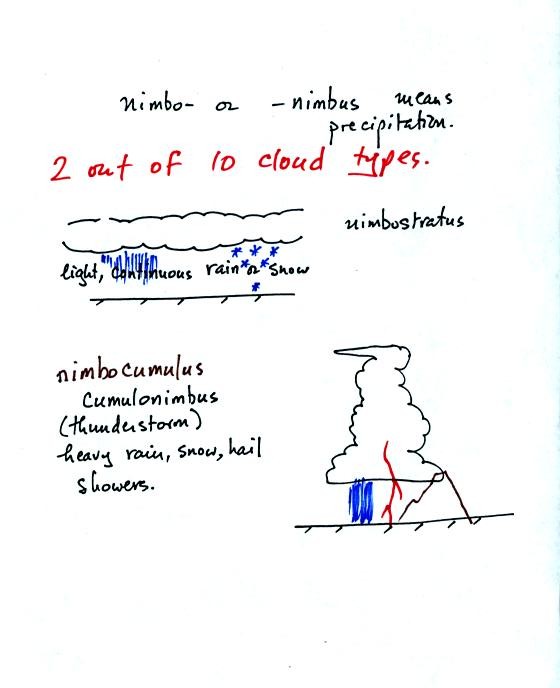 nimbo- or -nimbus means
precipitation.
2 out of 10 cloud types.
nimbostratus
light, continuous rain or snow
nimbocumulus
cumulonimbus
(thunderstorm)
heavy rain, snow, hail
showers.